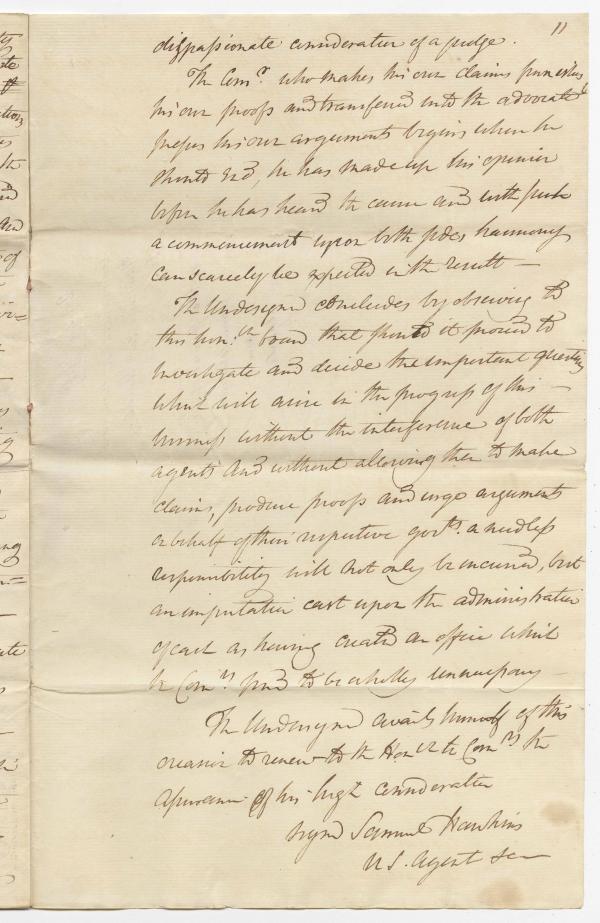 11
dispassionate consideration of a judge.
The Comr. who makes his own claims furnishes
his own proofs and transferred into the advocate
prefers his own arguments begins when he
should End, he has made up his opinion
before he has heard the cause and with such
a commencement upon both sides harmony
can scarcely be expected in the result —
The Undersigned concludes by observing to
this honble. board that should it proceed to
investigate and decide the important questions
which will arise in the progress of this —
business without the interference of both
agents and without allowing them to make
claims, produce proofs and urge arguments
on behalf of their respective govts. a needless
responsibility will not only be incurred, but
an imputation cast upon the administration
of each as having created an office which
the Comrs. find to be wholly unnecessary —
The Undersigned avails himself of this
occasion to renew to the Honble the Comrs the
assurance of his high consideration
signed Samuel Hawkins
U.S. Agent &c —